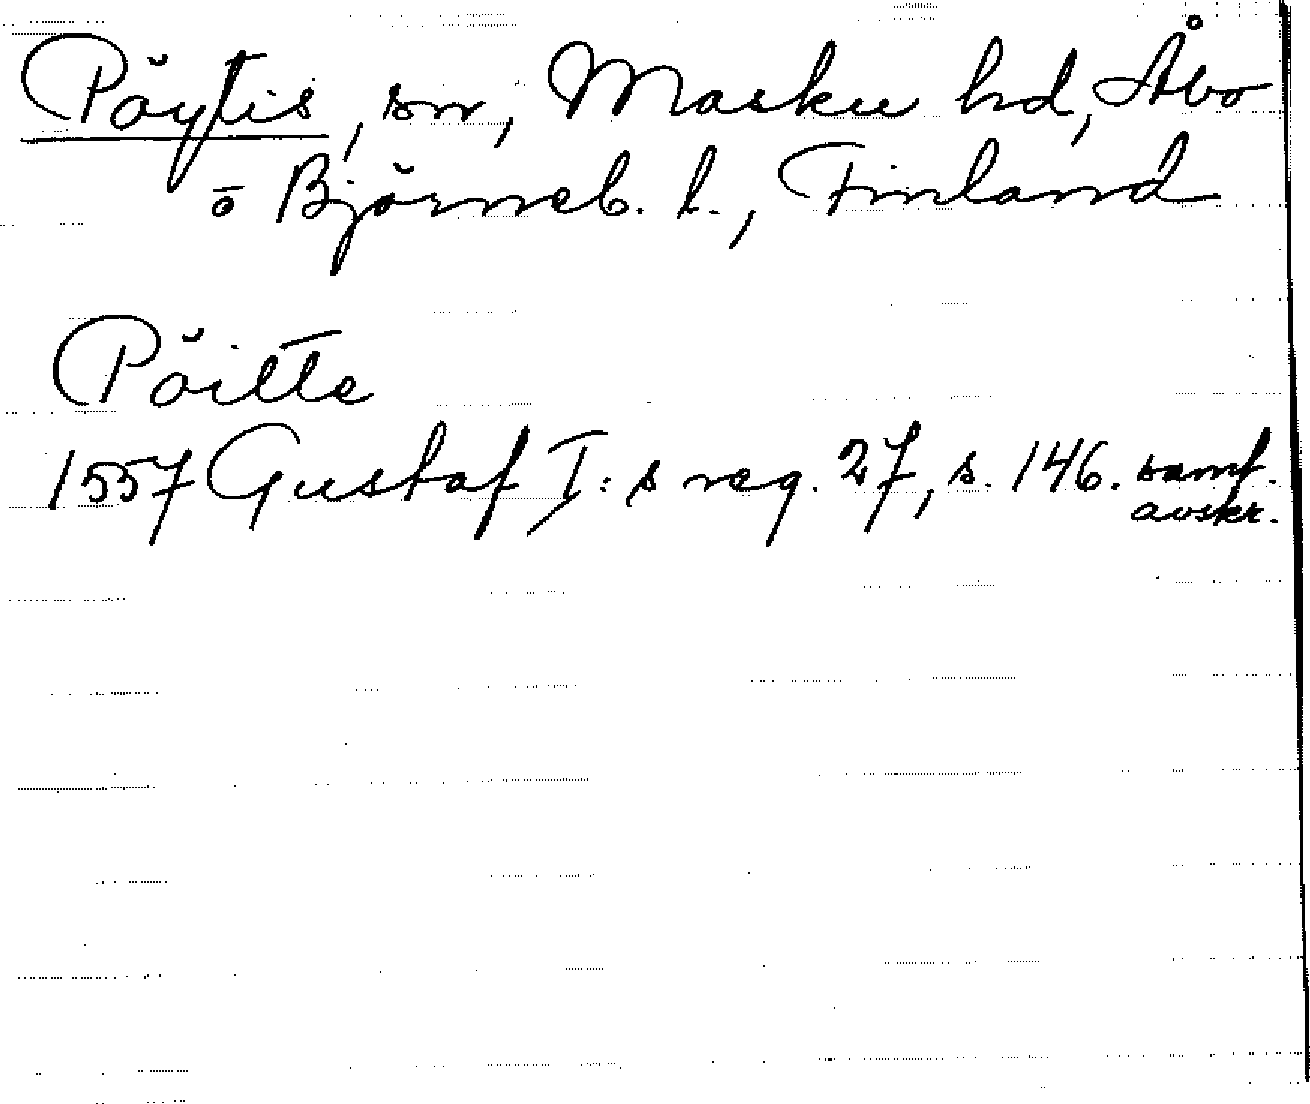 Pöytis, sn, Masku hd, Åbo
o Björneb. l., Finland
Pöitte
1557 Gustaf I:s reg. 27, s. 146. samt.
avskr.